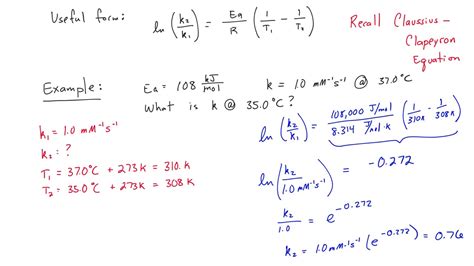 Useful form: ln(k₂/k₁) = Ea/R (1/T₁ - 1/T₂)
Recall Claussius-
Clapeyron
Equation
Example: Ea = 108 kJ/mol k = 1.0 mM⁻¹s⁻¹ @ 37.0°C
What is k @ 35.0°C?
k₁ = 1.0 mM⁻¹s⁻¹
k₂ = ?
T₁ = 37.0°C + 273K = 310. K
T₂ = 35.0°C + 273K = 308 K
ln(k₂/k₁) = 108,000 J/mol / 8.314 J/mol·K (1/310K - 1/308K)
ln(k₂/1.0 mM⁻¹s⁻¹) = -0.272
k₂/1.0 = e^-0.272
k₂ = 1.0 mM⁻¹s⁻¹ (e^-0.272) = 0.76